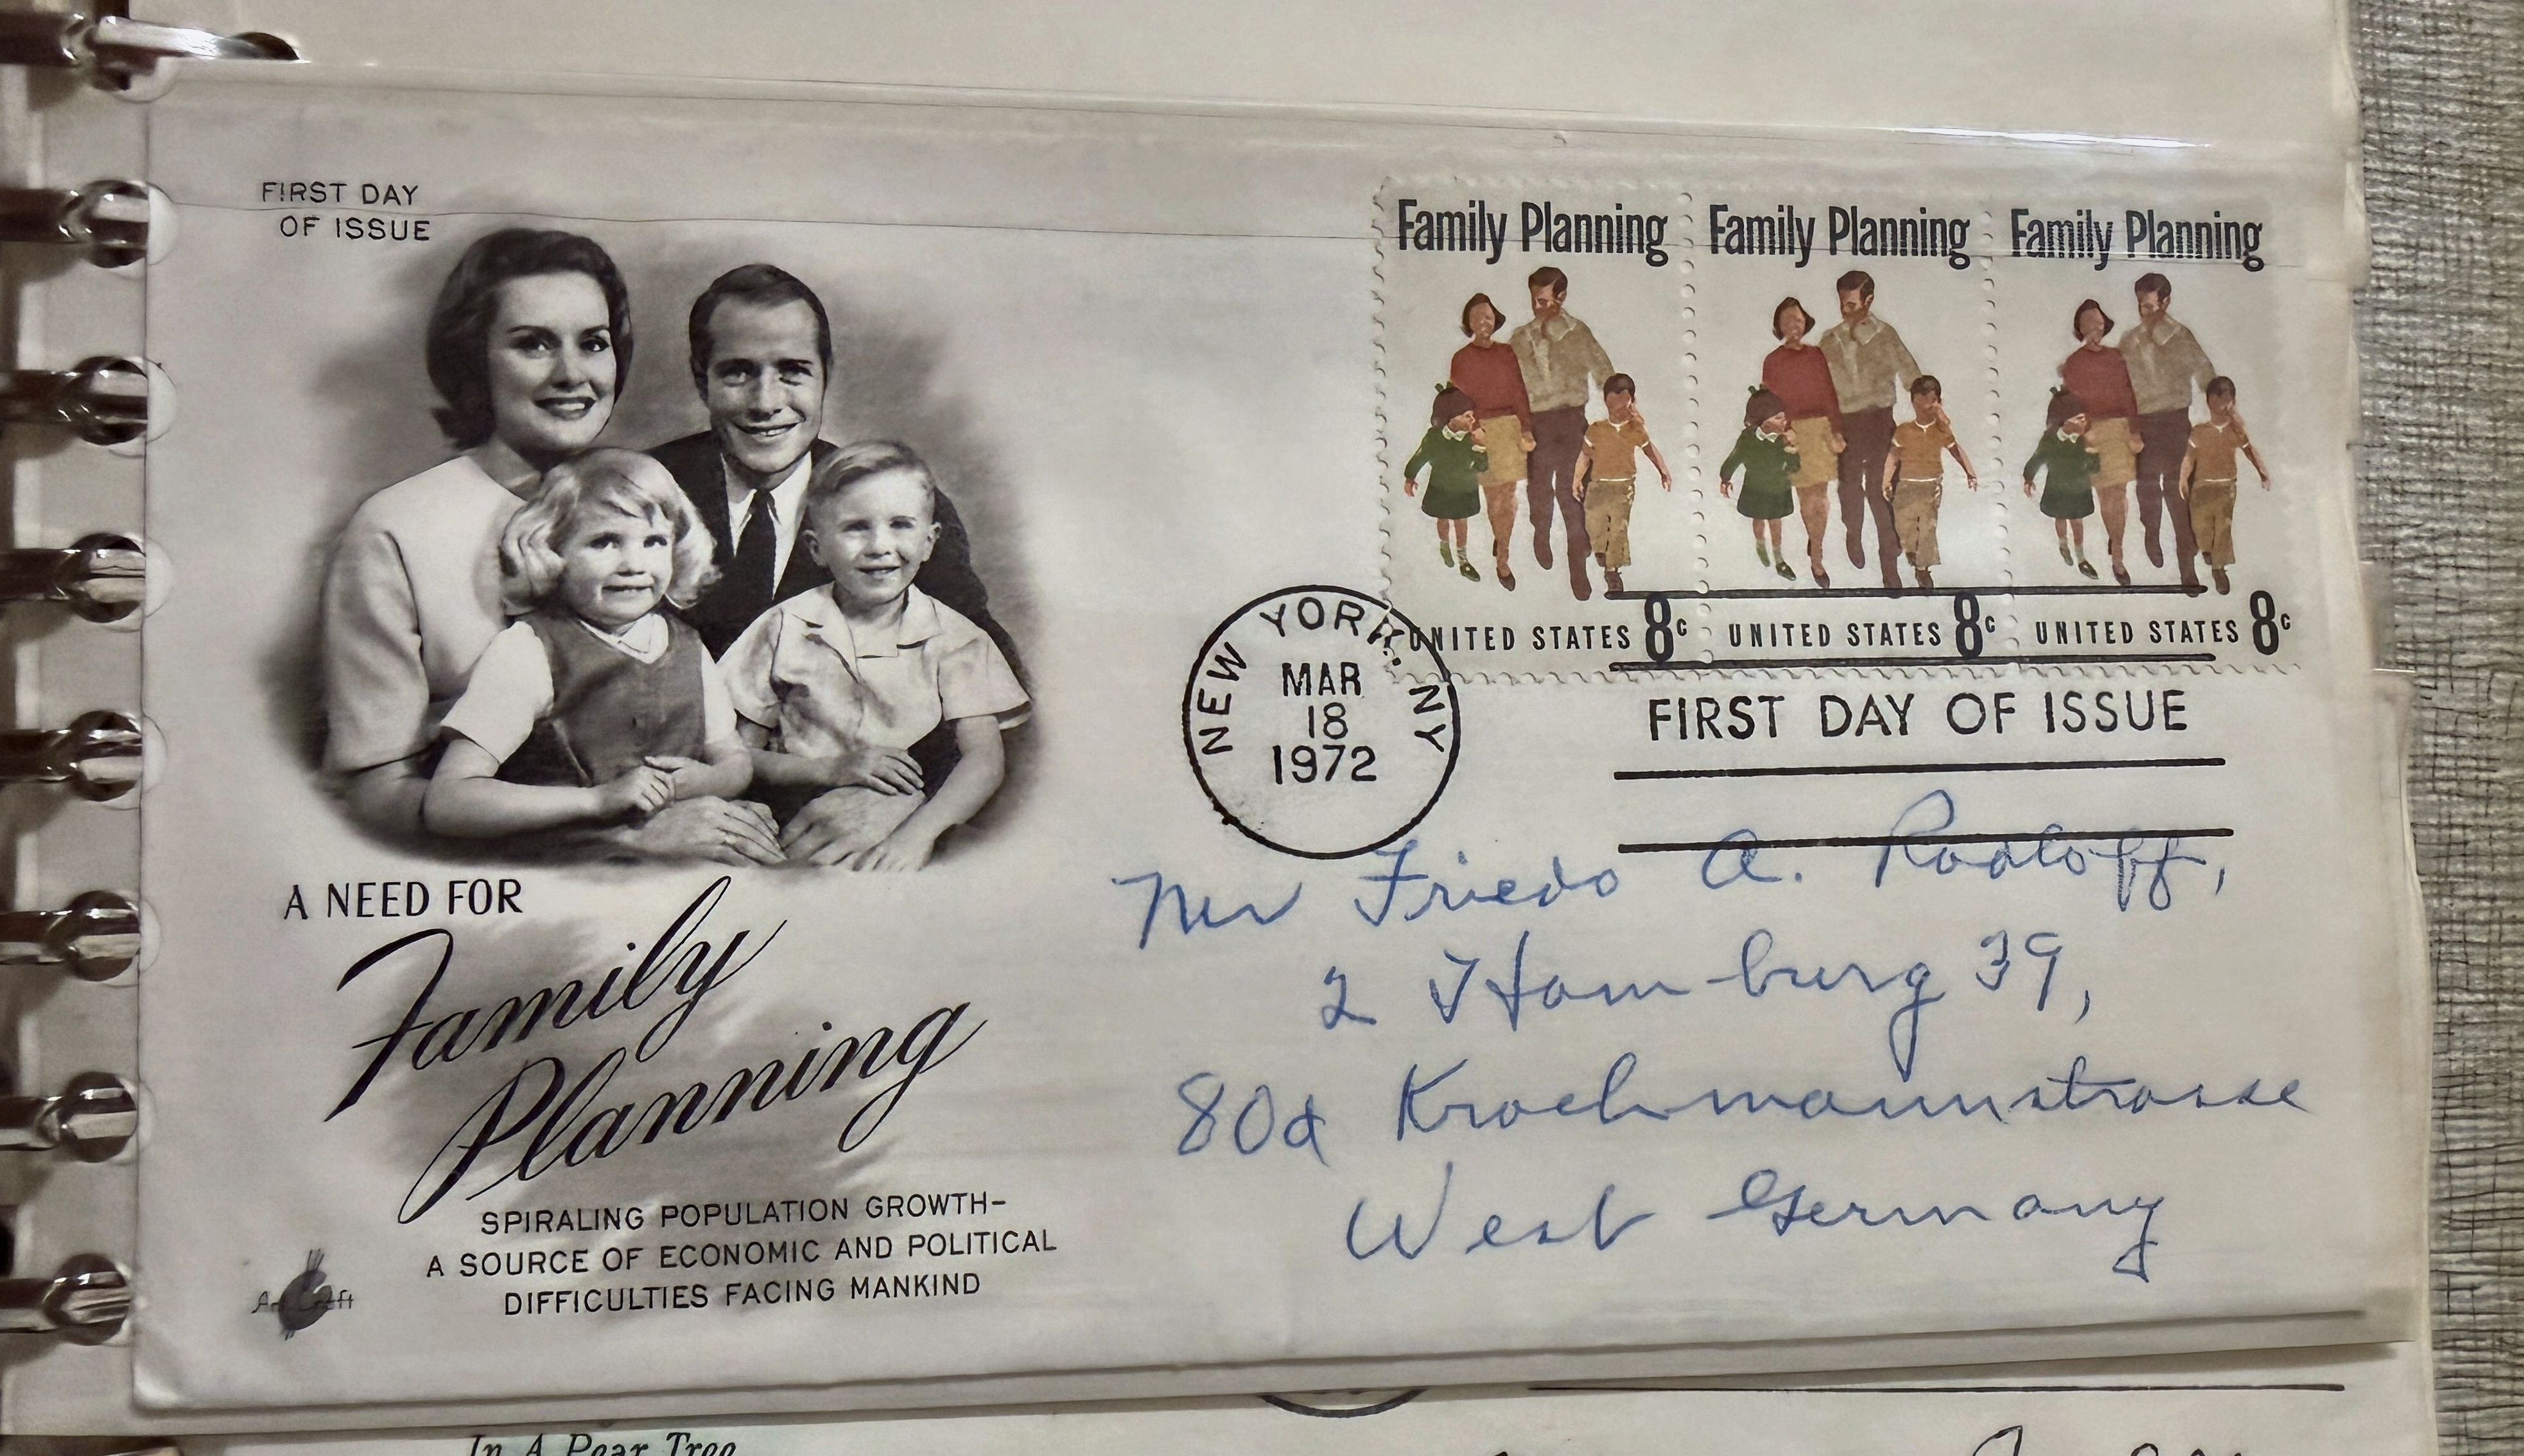 FIRST DAY
OF ISSUE
Family Planning
Family Planning
Family Planning
UNITED STATES 8c
UNITED STATES 8c
UNITED STATES 8c
NEW YORK, NY
MAR
18
1972
FIRST DAY OF ISSUE
A NEED FOR
Family
Planning
SPIRALING POPULATION GROWTH–
A SOURCE OF ECONOMIC AND POLITICAL
DIFFICULTIES FACING MANKIND
ArtCraft
Friedo A. Radloff,
2 Hamburg 39,
80a Krochmannstrasse
West Germany
In A Pear Tree